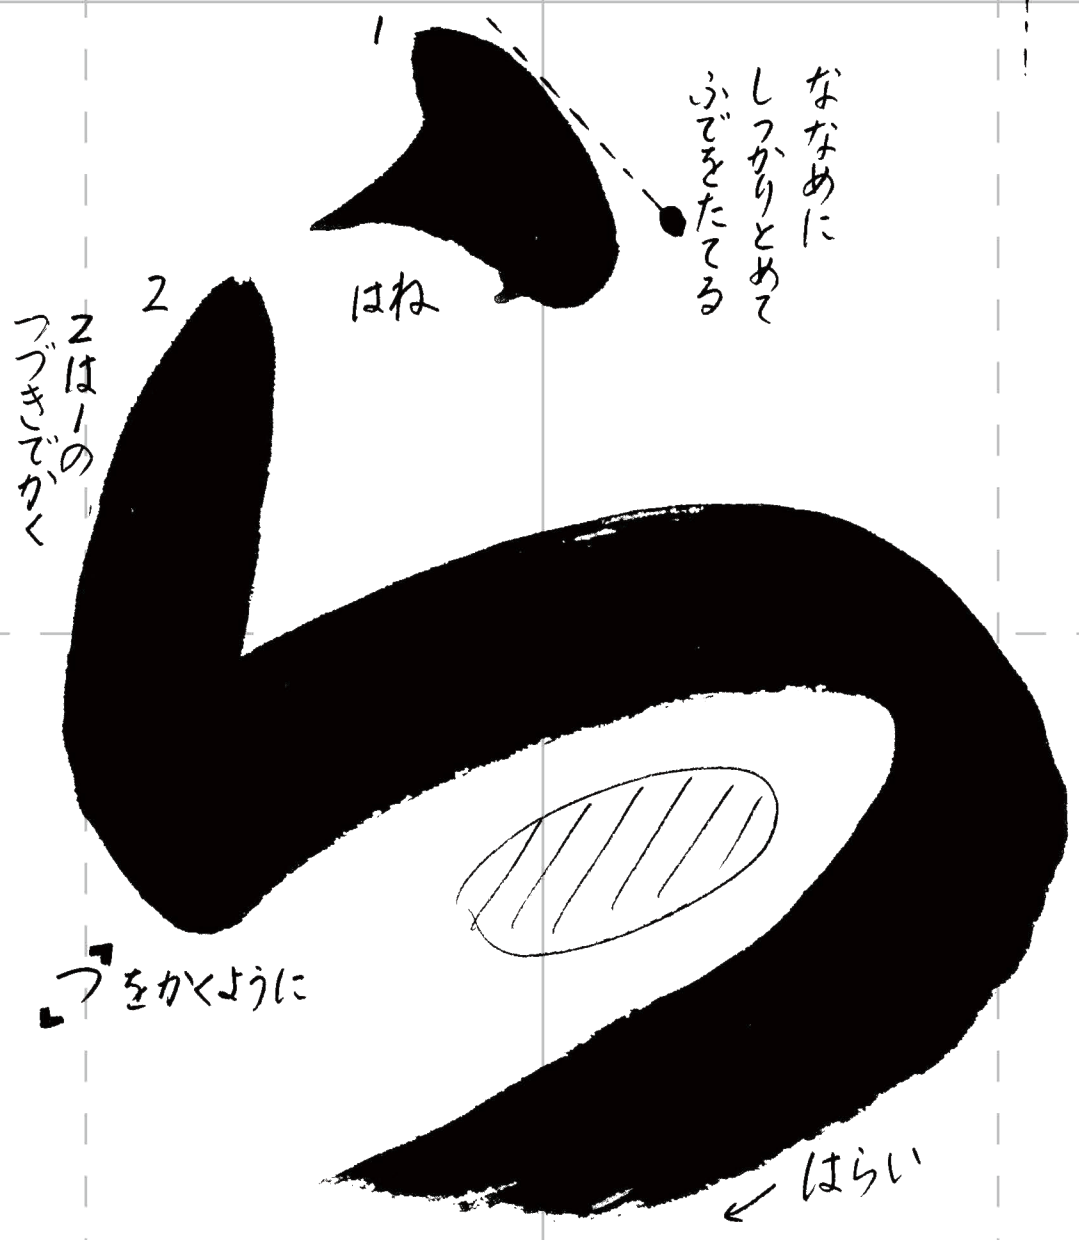 ら
1
ななめに
しっかりとめて
ふでをたてる
はね
2
2は1の
つづきでかく
「つ」をかくように
はらい